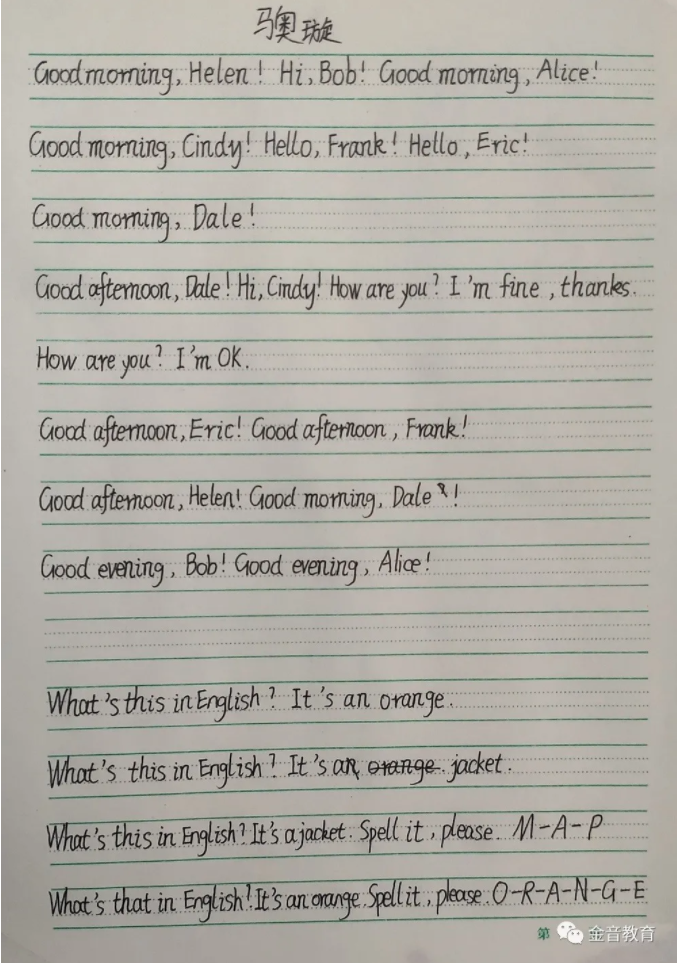 马奥璇
Good morning, Helen! Hi, Bob! Good morning, Alice!
Good morning, Cindy! Hello, Frank! Hello, Eric!
Good morning, Dale!
Good afternoon, Dale! Hi, Cindy! How are you? I'm fine, thanks.
How are you? I'm OK.
Good afternoon, Eric! Good afternoon, Frank!
Good afternoon, Helen! Good morning, Dale!
Good evening, Bob! Good evening, Alice!
What's this in English? It's an orange.
What's this in English? It's an orange. jacket.
What's this in English? It's a jacket. Spell it, please. M-A-P
What's that in English? It's an orange. Spell it, please. O-R-A-N-G-E
第 金音教育